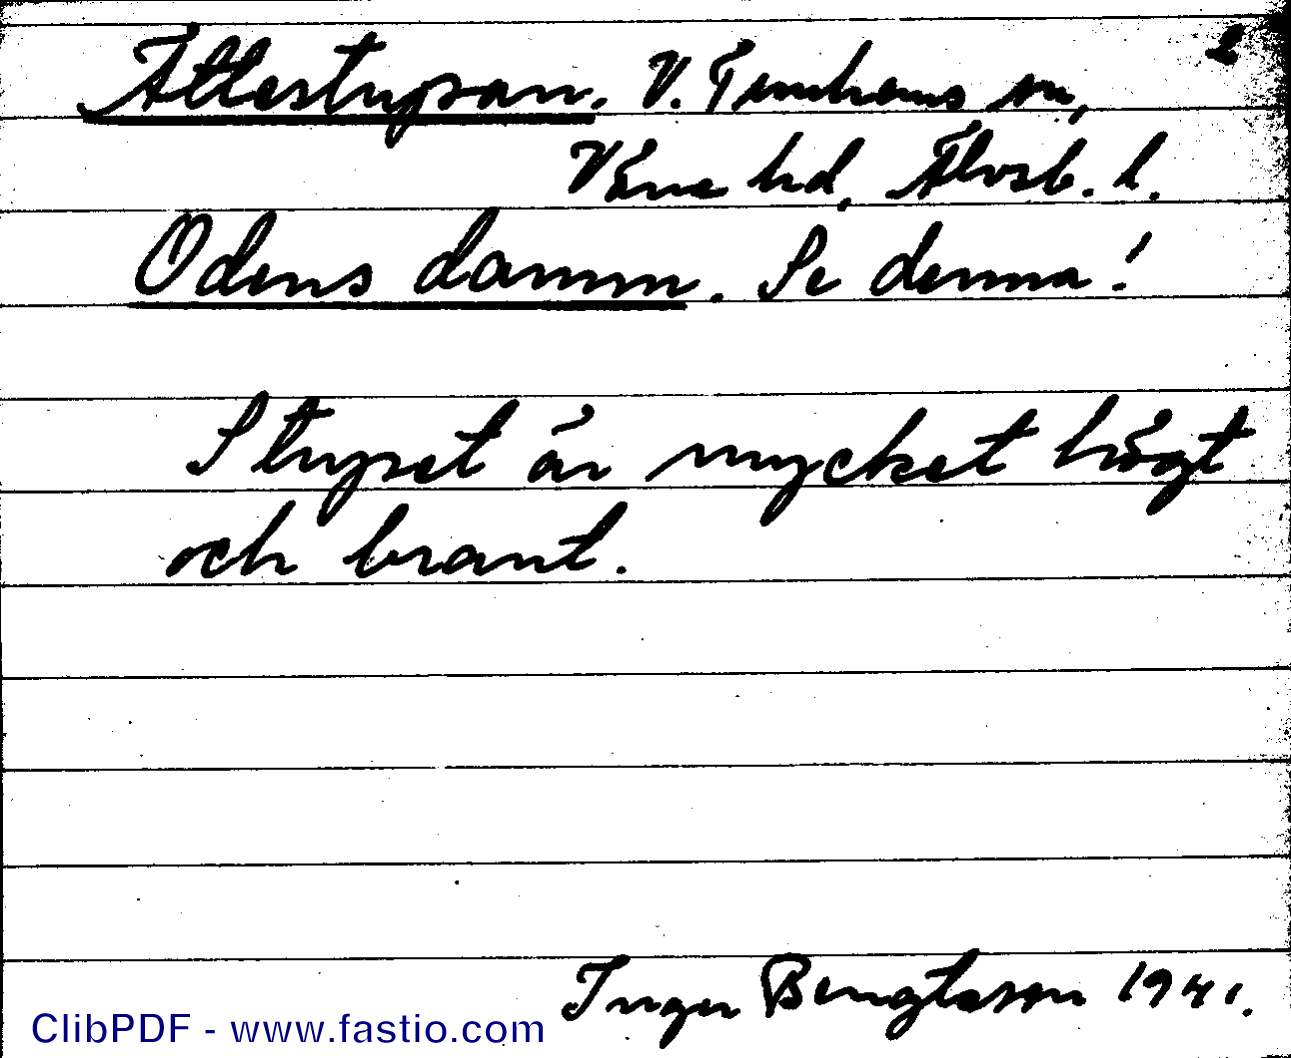 2
Ättestupan. V. Tunhems sn,
Väne hd, Älvsb. l.
Odens damm. Se denna!
Stupet är mycket högt
och brant.
Inger Bengtsson 1941.
ClibPDF - www.fastio.com